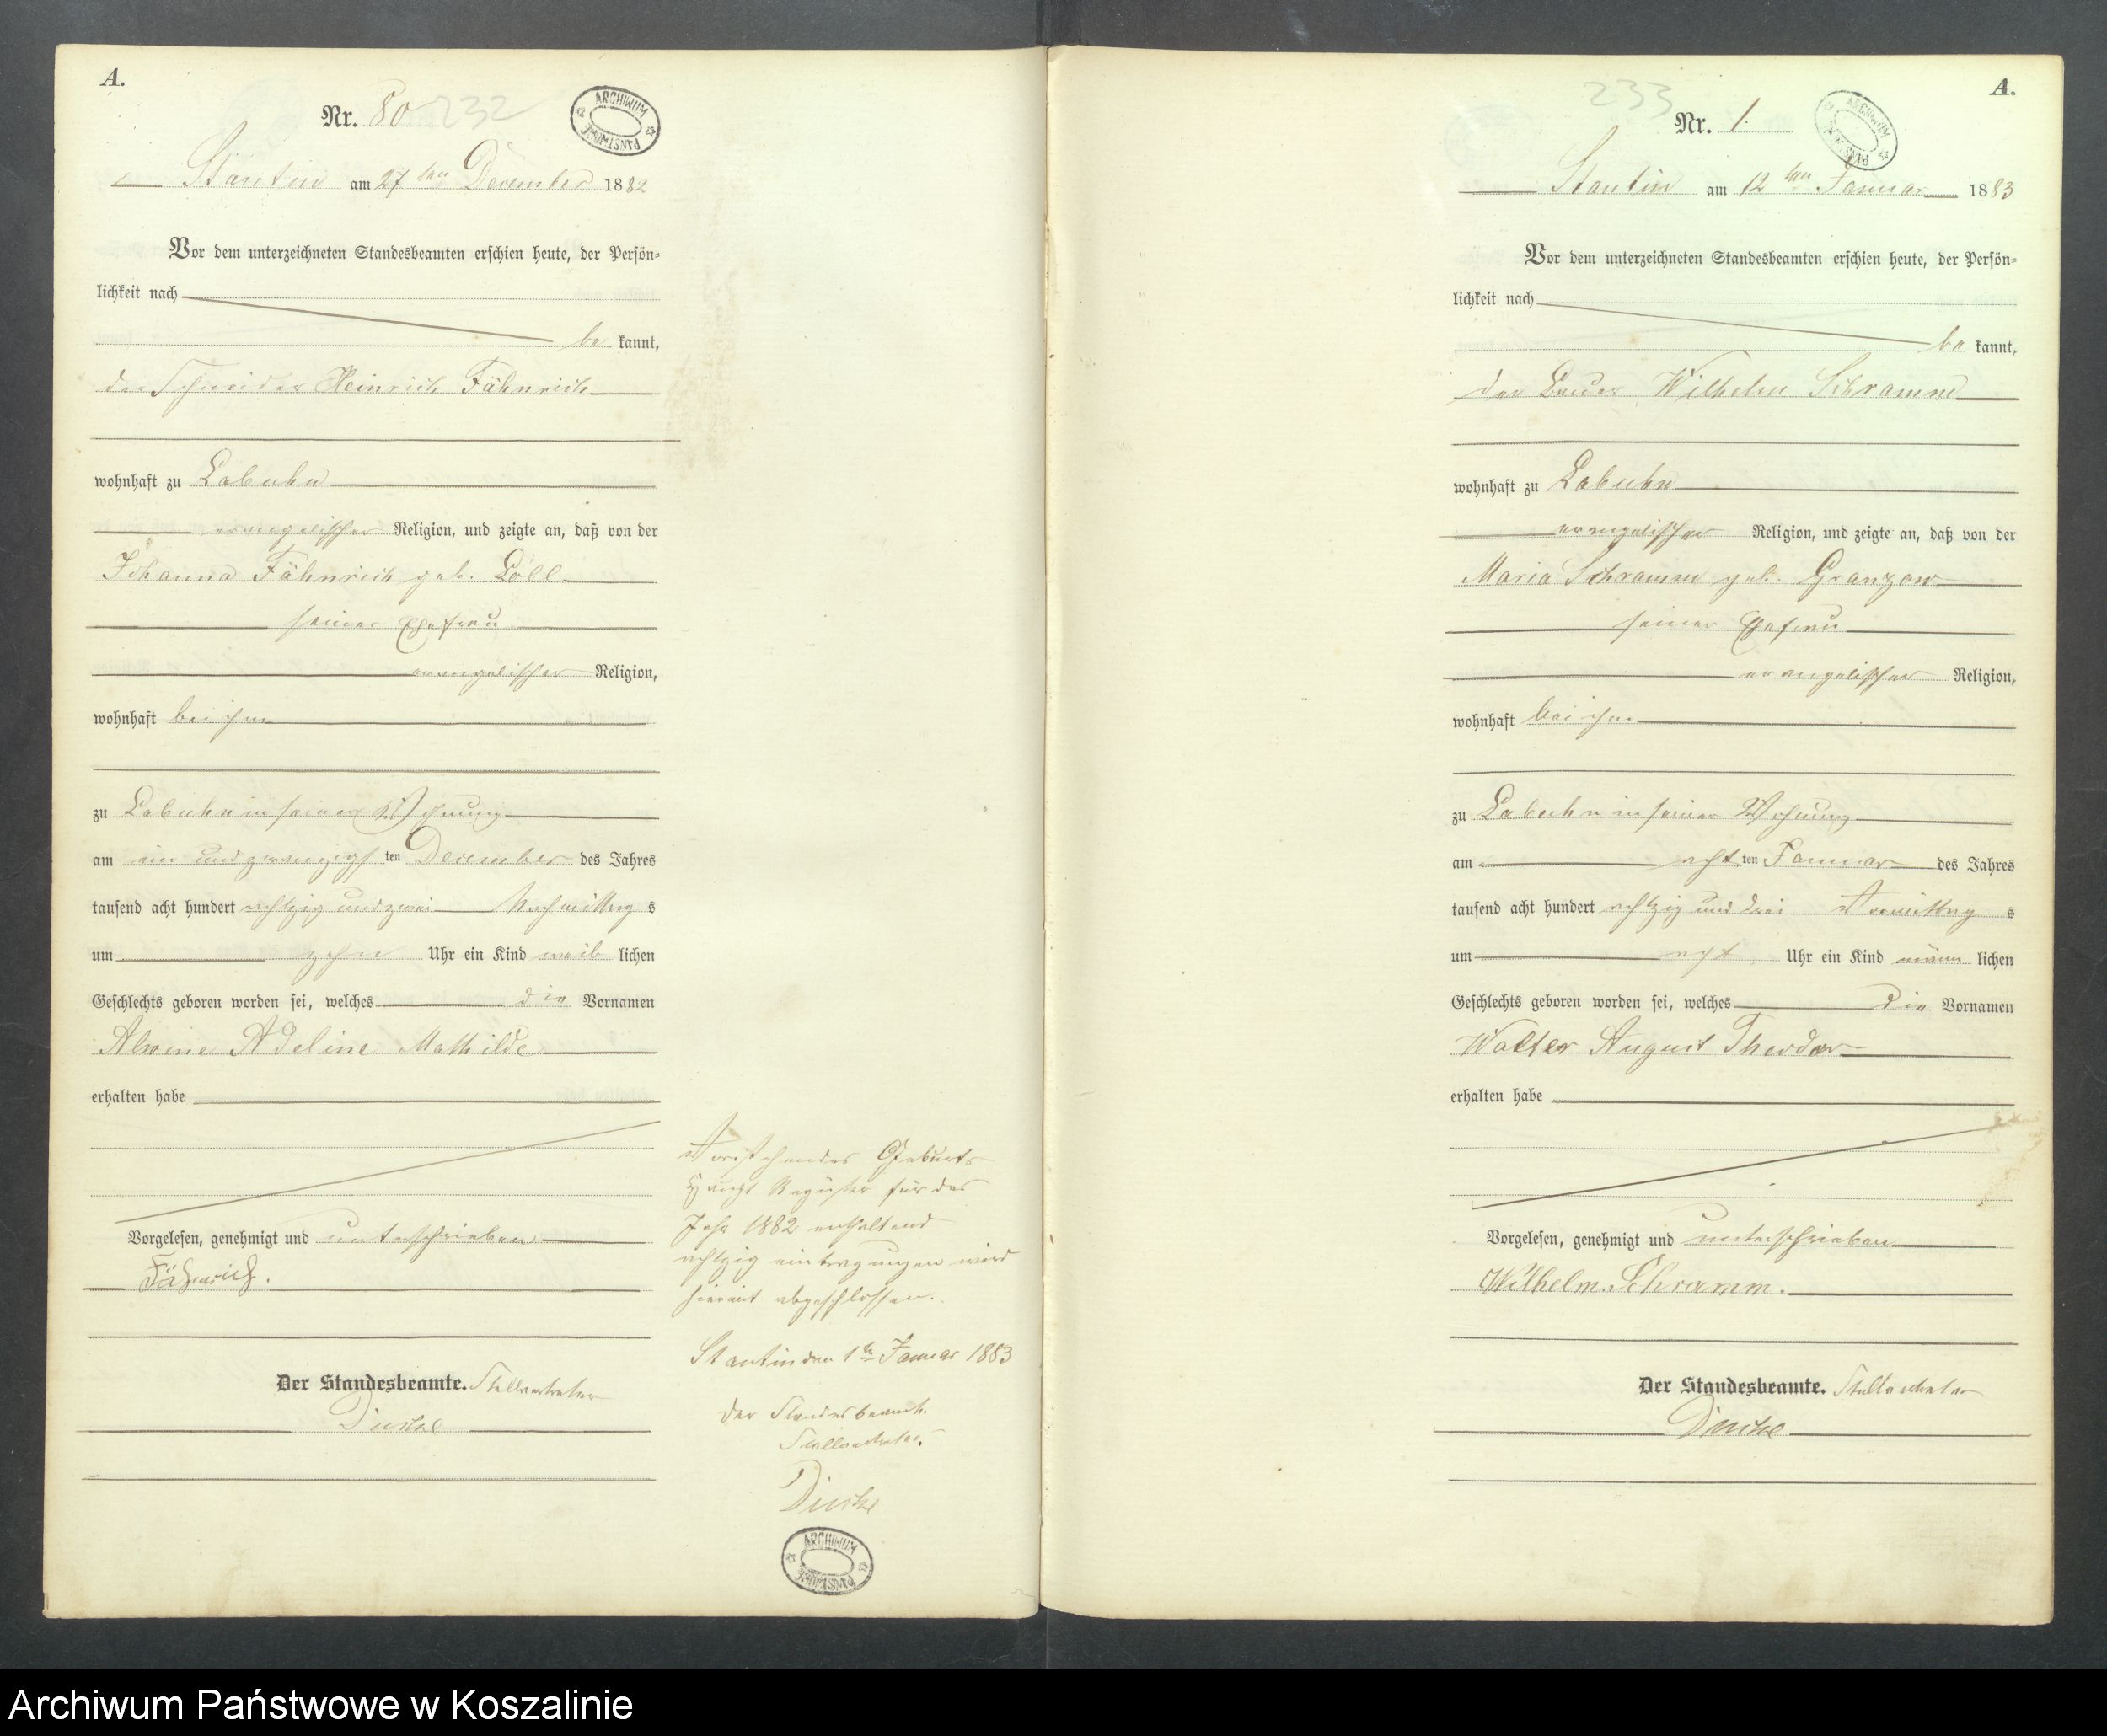 A.
Nr. 80 232
ARCHIWUM PAŃSTWOWE
Stantin am 27ten December 1882
Vor dem unterzeichneten Standesbeamten erschien heute, der Persön=
lichkeit nach
be kannt,
der Schneider Heinrich Fähnrich
wohnhaft zu Labuhn
evangelischer Religion, und zeigte an, daß von der
Johanna Fähnrich geb. Löll
seiner Ehefrau
evangelischer Religion,
wohnhaft bei ihm
zu Labuhn in seiner Wohnung
am ein und zwanzigsten December des Jahres
tausend acht hundert achtzig und zwei Nachmittag s
um zehn Uhr ein Kind weib lichen
Geschlechts geboren worden sei, welches die Vornamen
Alwine Adeline Mathilde
erhalten habe
Vorgelesen, genehmigt und unterschrieben
Fähnrich.
Der Standesbeamte. Stellvertreter
Vorstehendes Geburts
Haupt Register für das
Jahr 1882 enthaltend
achtzig eintragungen wird
hiermit abgeschlossen.
Stantin den 1ten Januar 1883
Der Standesbeamte.
Stellvertreter.
ARCHIWUM PAŃSTWOWE
A.
233
Nr. 1.
ARCHIWUM PAŃSTWOWE
Stantin am 12ten Januar 1883
Vor dem unterzeichneten Standesbeamten erschien heute, der Persön=
lichkeit nach
be kannt,
der Bauer Wilhelm Schramm
wohnhaft zu Labuhn
evangelischer Religion, und zeigte an, daß von der
Maria Schramm geb. Granzow
seiner Ehefrau
evangelischer Religion,
wohnhaft bei ihm
zu Labuhn in seiner Wohnung
am acht ten Januar des Jahres
tausend acht hundert achtzig und drei Vormittag s
um acht Uhr ein Kind männ lichen
Geschlechts geboren worden sei, welches die Vornamen
Walter August Theodor
erhalten habe
Vorgelesen, genehmigt und unterschrieben
Wilhelm. Schramm.
Der Standesbeamte. Stellvertreter
Archiwum Państwowe w Koszalinie